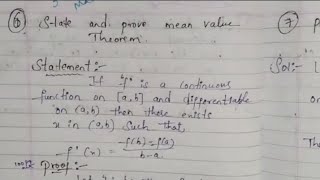 6 State and prove mean value
Theorem.
Statement:-
If 'f' is a continuous
function on [a,b] and differentiable
on (a,b) then there exists
x in (a,b) such that
f'(x) = f(b)-f(a) / b-a
Proof:-
7
Sol:-